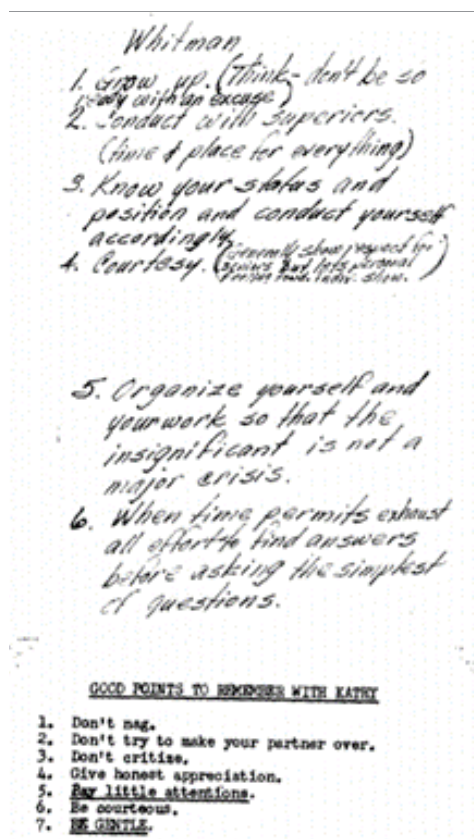 Whitman
1. Grow up. (Think - don't be so
ready with an excuse)
2. Conduct with superiers.
(time & place for everything)
3. Know your status and
position and conduct yourself
accordingly
4. Courtesy. (Generally show respect for
seniors but lets personal
feeling indiv. show.)
5. Organize yourself and
your work so that the
insignificant is not a
major crisis.
6. When time permits exhaust
all effort to find answers
before asking the simplest
of questions.
GOOD POINTS TO REMEMBER WITH KATHY
1. Don't nag.
2. Don't try to make your partner over.
3. Don't critize.
4. Give honest appreciation.
5. Pay little attentions.
6. Be courteous.
7. BE GENTLE.